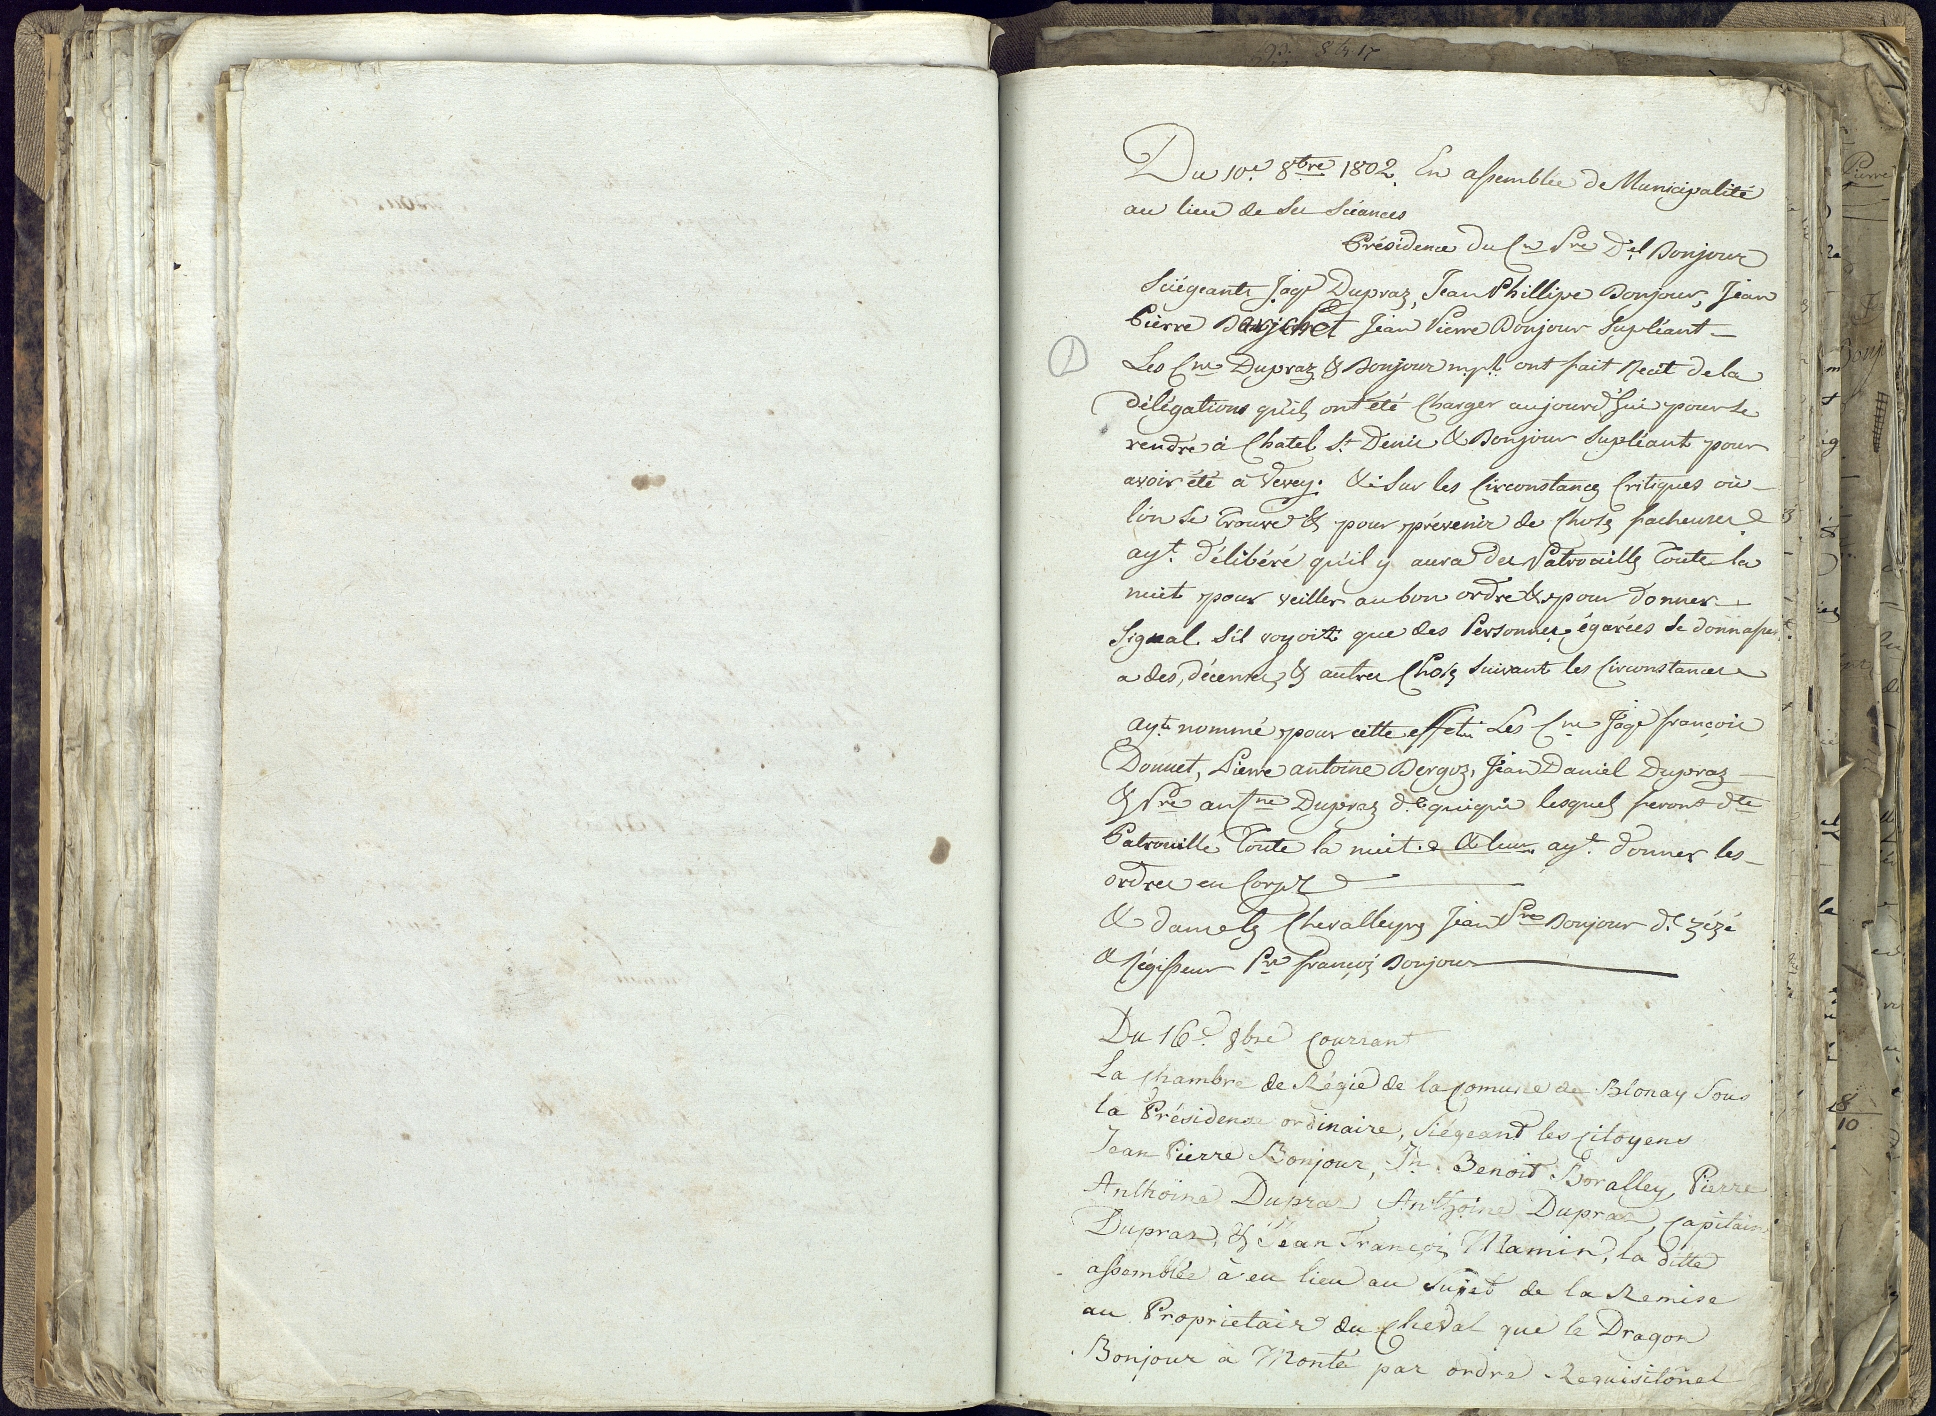 Du 10e 8bre 1802. En assemblée de Municipalité
au lieu de ses Séances
Présidence du Cn Pre Del Bonjour
Siégeants Jaqs Dupraz, Jean Phillipe Bonjour, Jean
Pierre Jean Pierre Bonjour Supléant
Les Cns Dupraz & Bonjour mpl ont fait Recit de la
délégations qu'ils ont été Charger aujourd'hui pour se
rendre à Chatel St Denis & Bonjour Supléant pour
avoir été à Vevey. & Sur les Circonstances Critiques où
l'on se trouve & pour prévenir de Choses facheuses
ayt délibéré qu'il y aura des Patrouilles toute la
nuit pour veiller au bon ordre & pour donner
Signal. S'il voyoit que des Personnes égarées se donnasse
a des, décentes & autres Choses suivant les Circonstances
ayt nommé pour cette effet Les Cns Jaqs françois
Donnet, Pierre antoine Bergoz, Jean Daniel Dupraz
& Pre antne Dupraz dt quiqui lesquels feront dte
Patrouille toute la nuit. & leur ayt donner les
ordres en Corps
& Chevalleyrs Jean Pre Bonjour dt zézé
& Régisseur Pre françois Bonjour
Du 16e 8bre courrant
La chambre de Régie de la comune de Blonay Sous
la Présidense ordinaire, Siégeant les citoyens
Jean Pierre Bonjour, Jn Benoit Boralley, Pierre
Anthoine Dupraz Anthoine Dupraz, capitain
Dupraz, & Jean François Mamin, la ditte
assemblée à eu lieu au Sujet de la Remise
au Proprietair du cheval que le Dragon
Bonjour a Monté par ordre Requisitonel
8
10
Pierre